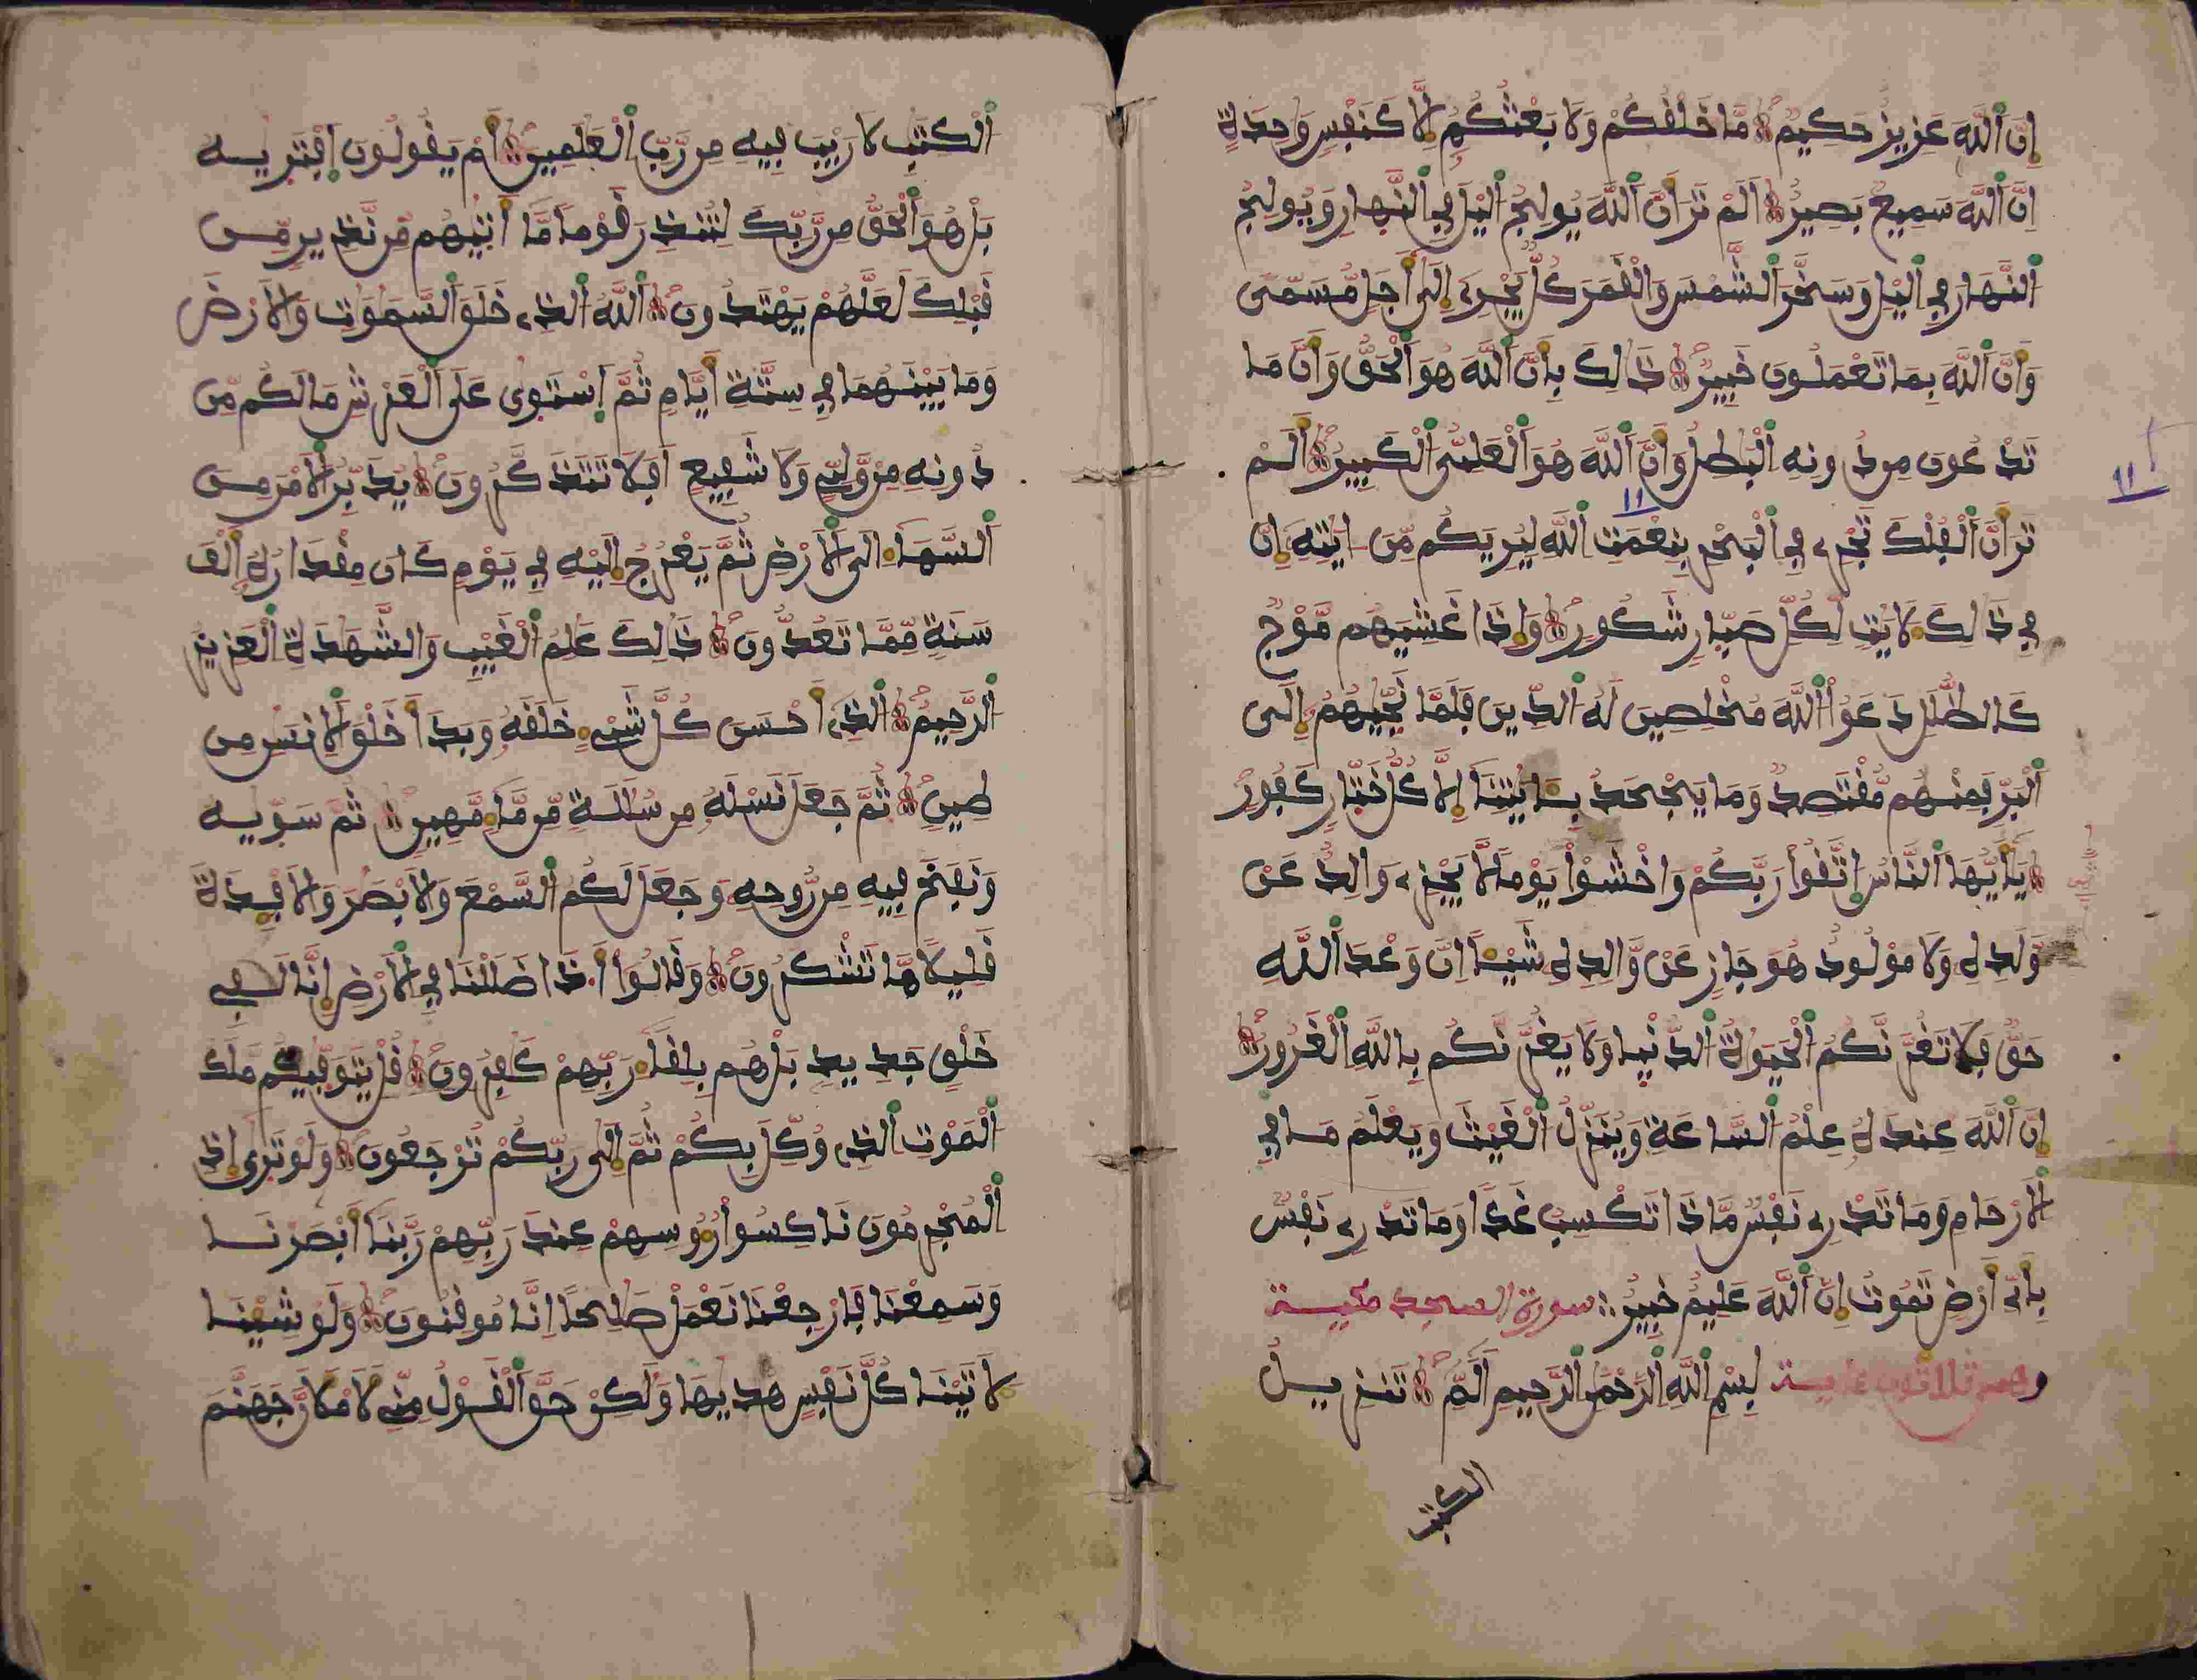 إِنَّ اَللَّهَ عَزِيزٌ حَكِيمٌ مَّا خَلْقُكُمْ وَلَا بَعْثُكُمُ إِلَّا كَنَفْسٍ وَٰحِدَةٍ
اِنَّ اَللَّهَ سَمِيعٌ بَصِيرٌ اَلَمْ تَرَ أَنَّ اَللَّهَ يُولِجُ اُليْلَ فِي اِلنَّهارِ وَيُولِجُ
اُلنَّهَارَ فِي اِليْلِ وَسَخَّرَ اَلشَّمْسَ وَالْقَمَرَ كُلٌّ يَّجْرِي إِلَىٰ أَجَلٍ مُّسَمّىً
وَأَنَّ اَللَّهَ بِمَا تَعْمَلُونَ خَبِيرٌ ذَٰلِكَ بِأَنَّ اَللَّهَ هُوَ اَلْحَقُّ وَأَنَّ مَا
تَدْعُونَ مِن دُونِهِ اِلْبَٰطِلُ وَأَنَّ اَللَّهَ هُوَ اَلْعَلِيُّ اُلْكَبِيرُ أَلَمْ
تَرَ أَنَّ اَلْفُلْكَ تَجْرِي فِي اِلْبَحْرِ بِنِعْمَتِ اِللَّهِ لِيُرِيَكُم مِّنَ ـايَٰتِهِ إِنَّ
فِي ذَٰلِكَ لَأَيَٰتٍ لِّكُلِّ صَبّارٍ شَكُورٍ وَإِذَا غَشِيَهُم مَّوْجٌ
كَالظُّلَلِ دَعَوُا اُللَّهَ مُخْلِصِينَ لَهُ اُلدِّينَ فَلَمَّا نَجّيٰهُمُ إِلَى
اَلْبَرِّ فَمِنْهُم مُّقْتَصِدٌ وَمَا يَجْحَدُ بِـَٔايَٰتِنَا إِلَّا كُلُّ خَتّارٍ كَفُورٍ
يَٰأَيُّهَا اَلنَّاسُ اُتَّقُوا رَبَّكُمْ وَاخْشَوْا يَوْماً لَّا يَجْزِي وَالِدٌ عَنْ
وَّلَدِهِ وَلَا مَوْلُودٌ هُوَ جَازٍ عَنْ وَّالِدِهِ شَيْـًٔا اِنَّ وَعْدَ اَللَّهِ
حَقٌّ فَلَا تَغُرَّنَّكُمُ اُلْحَيَوٰةُ اُلدُّنْيا وَلَا يَغُرَّنَّكُم بِاللَّهِ اِلْغَرُورُ
إِنَّ اَللَّهَ عِندَهُ عِلْمُ اُلسَّاعَةِ وَيُنَزِّلُ اُلْغَيْثَ وَيَعْلَمُ مَا فِي
اِلْأَرْحَامِ وَمَا تَدْرِي نَفْسٌ مَّاذَا تَكْسِبُ غَداً وَمَا تَدْرِي نَفْسٌ
بِأَيِّ أَرْضٍ تَمُوتُ إِنَّ اَللَّهَ عَلِيمٌ خَبِيرٌ سورة السجدة مكية
وهي ثلاثون ءاية بِسْمِ اِللَّهِ اِلرَّحْمَٰنِ اِلرَّحِيمِ أَلَمِّ تَنزِيلُ
الكتب
11
11
اُلْكِتَٰبِ لَا رَيْبَ فِيهِ مِن رَّبِّ اِلْعَٰلَمِينَ أَمْ يَقُولُونَ اَفْتَرَيٰهُ
بَلْ هُوَ اَلْحَقُّ مِن رَّبِّكَ لِتُنذِرَ قَوْماً مَّا أَتَيٰهُم مِّن نَّذِيرٍ مِّن
قَبْلِكَ لَعَلَّهُمْ يَهْتَدُونَ اَللَّهُ اُلذِي خَلَقَ اَلسَّمَٰوَٰتِ وَالْأَرْضَ
وَمَا بَيْنَهُمَا فِي سِتَّةِ أَيَّامٍ ثُمَّ اَسْتَوىٰ عَلَى اَلْعَرْشِ مَا لَكُم مِّن
دُونِهِ مِنْ وَّلِيٍّ وَلَا شَفِيعٍ اَفَلَا تَتَذَكَّرُونَ يُدَبِّرُ اُلْأَمْرَ مِنَ
اَلسَّمَاءِ الَى اَلْأَرْضِ ثُمَّ يَعْرُجُ إِلَيْهِ فِي يَوْمٍ كَانَ مِقْدَارُهُ أَلْفَ
سَنَةٍ مِّمَّا تَعُدُّونَ ذَٰلِكَ عَٰلِمُ اُلْغَيْبِ وَالشَّهَٰدَةِ اِلْعَزِيزُ
اُلرَّحِيمُ اُلذِي أَحْسَنَ كُلَّ شَيْءٍ خَلَقَهُ وَبَدَأَ خَلْقَ اَلْإِنسَٰنِ مِن
طِينٍ ثُمَّ جَعَلَ نَسْلَهُ مِن سُلَٰلَةٍ مِّن مَّاءٍ مَّهِينٍ ثُمَّ سَوّيٰهُ
وَنَفَخَ فِيهِ مِن رُّوحِهِ وَجَعَلَ لَكُمُ اُلسَّمْعَ وَالْأَبْصَٰرَ وَالْأَفْـِٔدَةَ
قَلِيلاً مَّا تَشْكُرُونَ وَقَالُوا أَ.ذَا ضَلَلْنَا فِي اِلْأَرْضِ إِنَّا لَفِي
خَلْقٍ جَدِيدٍ بَلْ هُم بِلِقَاءِ رَبِّهِمْ كَٰفِرُونَ قُلْ يَتَوَفّيٰكُم مَّلَكُ
اُلْمَوْتِ اِلذِي وُكِّلَ بِكُمْ ثُمَّ إِلَىٰ رَبِّكُمْ تُرْجَعُونَ وَلَوْ تَرىٰ إِذِ
اِلْمُجْرِمُونَ نَاكِسُوا رُءُوسِهِمْ عِندَ رَبِّهِمْ رَبَّنَا أَبْصَرْنَا
وَسَمِعْنَا فَارْجِعْنَا نَعْمَلْ صَٰلِحاً اِنَّا مُوقِنُونَ وَلَوْ شِيْنَا
لَأَتَيْنَا كُلَّ نَفْسٍ هُدَيٰهَا وَلَٰكِنْ حَقَّ اَلْقَوْلُ مِنِّي لَأَمْلَأَنَّ جَهَنَّمَ